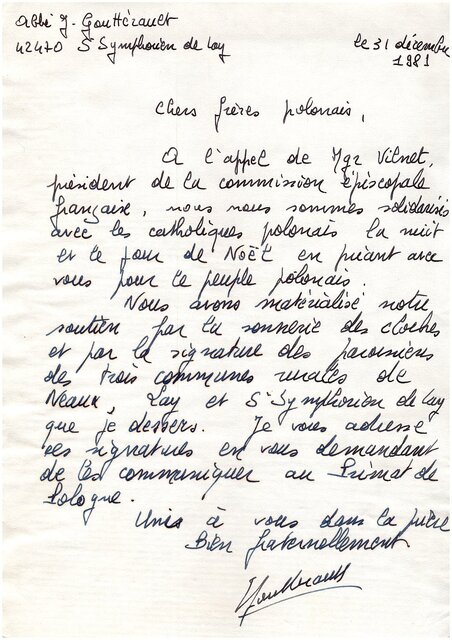 Abbé J. Gouttérault
42470 St Symphorien de Lay
le 31 décembre
1981
Chers frères polonais,
A l'appel de Mgr Vilnet,
président de la commission épiscopale
française, nous nous sommes solidarisés
avec les catholiques polonais la nuit
et le jour de Noët en priant avec
vous pour le peuple polonais.
Nous avons matérialisé notre
soutien par la sonnerie des cloches
et par la signature des paroissiens
des trois communes rurales de
Neaux, Lay et St Symphorien de Lay
que je dessers. Je vous adresse
ces signatures en vous demandant
de les communiquer au Primat de
Pologne.
Unis à vous dans la prière
Bien fraternellement